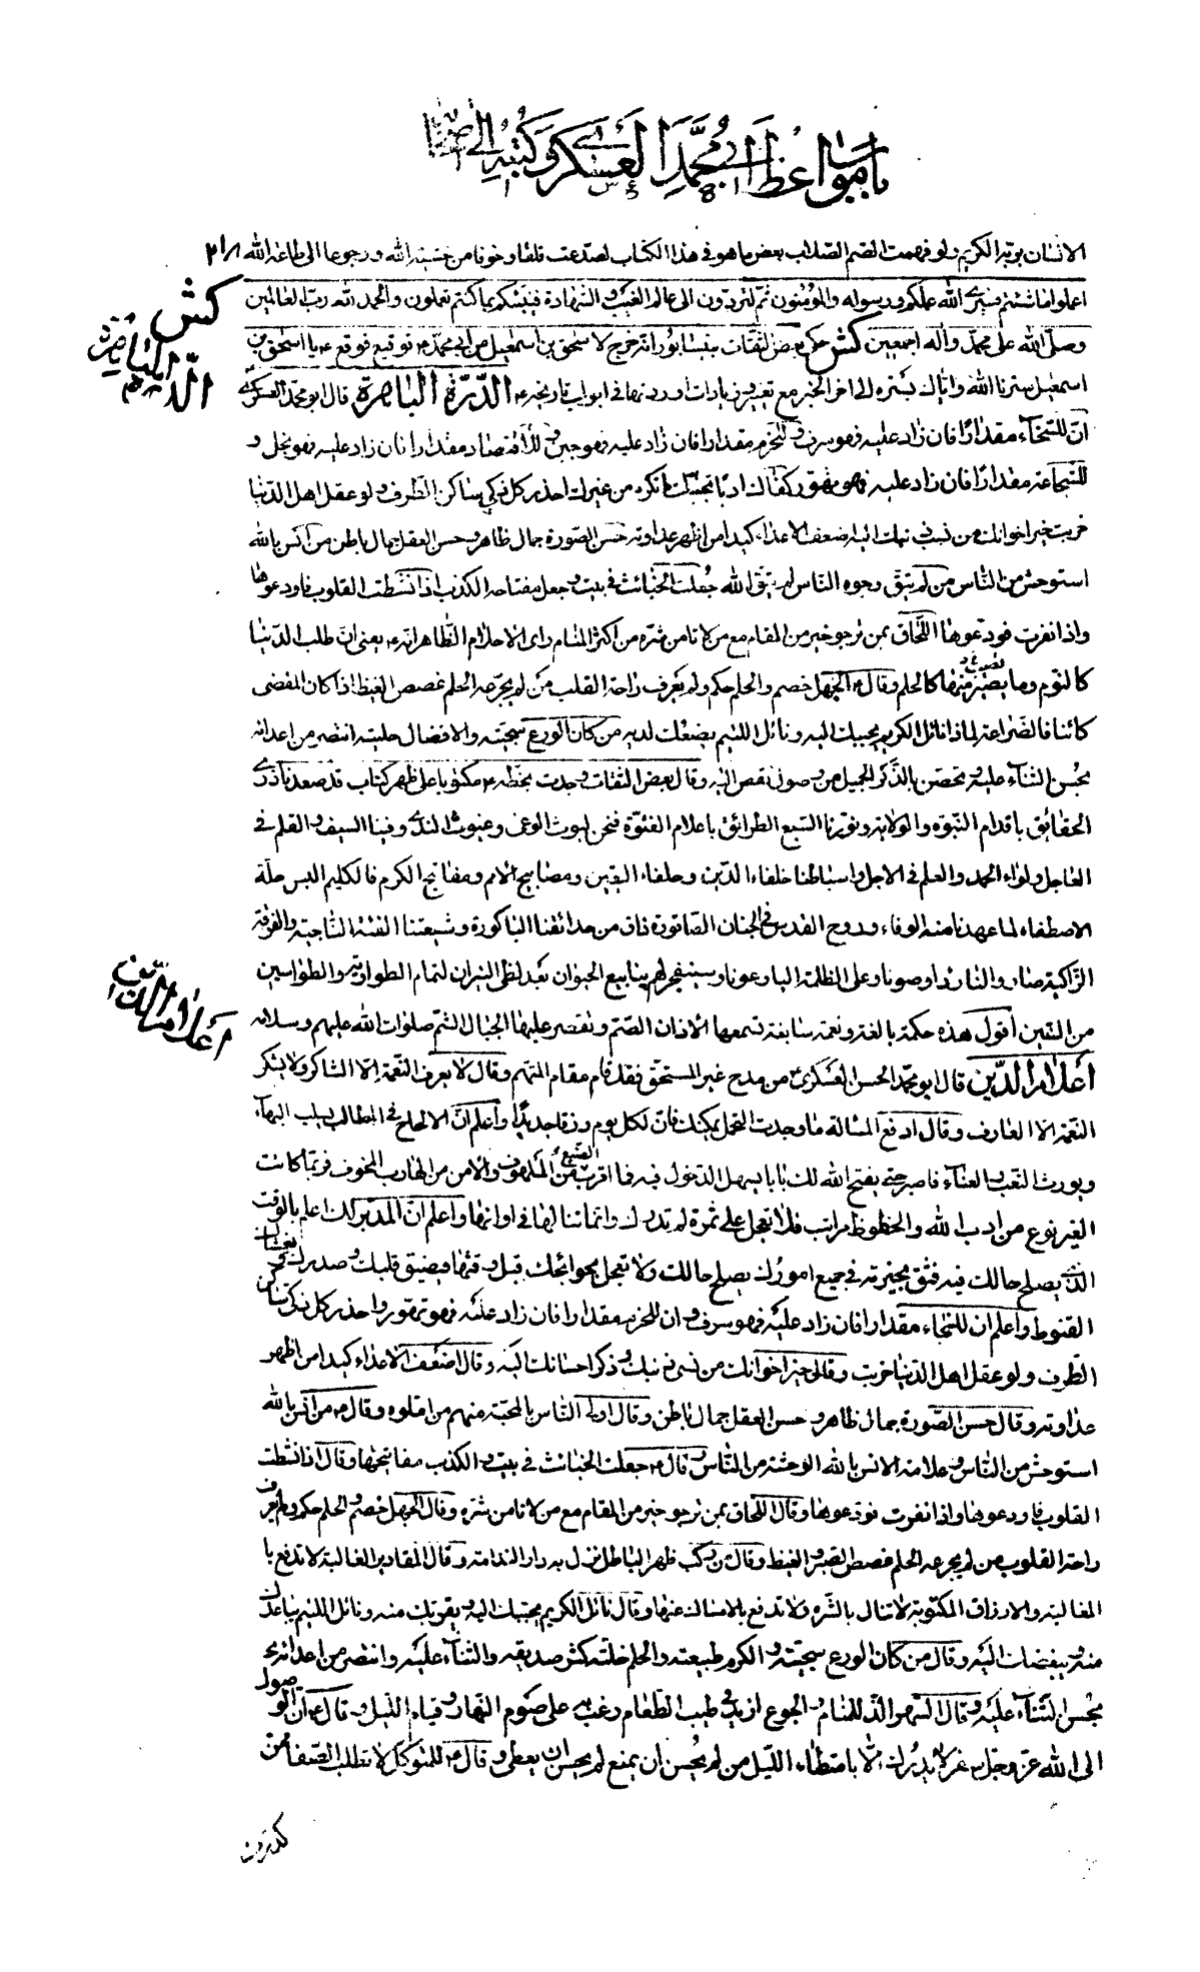 باب مواعظ ابي محمد العسكري وكتبه الى اصحابه
الانسان بربه الكريم ولو فهمت الصم الصلاب بعض ما هو في هذا الكتاب لصدعت قلقا وخوفا من خشية الله ورجوعا الى طاعة الله
اعملوا ما شئتم فسيرى الله عملكم ورسوله والمؤمنون ثم تردون الى عالم الغيب والشهادة فينبئكم بما كنتم تعملون والحمد لله رب العالمين
كش
وصلى الله على محمد واله اجمعين كش حكى بعض الثقات بنيسابور انه خرج لاسحق بن اسمعيل من ابي محمد ع توقيع فوقع ع يا اسحق بن
الدرة الباهرة
اسمعيل سترنا الله واياك بستره الى اخر الخبر مع تغيير وزيادات اوردتها في ابواب تاريخه ع الدرة الباهرة قال ابو محمد العسكري
ان للسخاء مقدارا فان زاد عليه فهو سرف وللحزم مقدارا فان زاد عليه فهو جبن وللاقتصاد مقدارا فان زاد عليه فهو بخل و
للشجاعة مقدارا فان زاد عليه فهو تهور كفاك ادبا تجنبك ما تكره من غيرك احذر كل ذكي ساكن الطرف ولو عقل اهل الدنيا
خربت خير اخوانك من نسي ذنبك اليه اضعف الاعداء كيدا من اظهر عداوته حسن الصورة جمال ظاهر وحسن العقل جمال باطن من انس بالله
استوحش من الناس من لم يتق وجوه الناس لم يتق الله جعلت الخبائث في بيت وجعل مفتاحه الكذب اذا نشطت القلوب فاودعوها
واذا نفرت فودعوها اللحاق بمن ترجو خير من المقام مع من لا تامن شره من اكثر المنام راى الاحلام الظاهر انه ع يعني ان طلب الدنيا
كالنوم وما يصير منها كالحلم وقال ع الجهل خصم والحلم حكم ولم يعرف راحة القلب من لم يجرعه الحلم غصص الغيظ اذا كان المقضى
كائنا فالضراعة لماذا نائل الكريم يحببك اليه ونائل اللئيم يضعك لديه من كان الورع سجيته والافضال حليته انتصر من اعدائه
بحسن الثناء عليه وتحصن بالذكر الجميل من وصول نقص اليه وقال بعض الثقات وجدت بخطه ع مكتوبا على ظهر كتاب قد صعدنا ذرى
الحقايق باقدام النبوة والولاية ونورنا السبع الطرائق باعلام الفتوة فنحن ليوث الوغى وغيوث الندى وفينا السيف والقلم في
العاجل ولواء الحمد والعلم في الاجل واسباطنا خلفاء الدين وحلفاء اليقين ومصابيح الامم ومفاتيح الكرم فالكليم البس حلة
الاصطفاء لما عهدنا منه الوفاء وروح القدس في الجنان الصاقورة ذاق من حدائقنا الباكورة وشيعتنا الفئة الناجية والفرقة
الزاكية صاروا لنا ردءا وصونا وعلى الظلمة البا وعونا وسينفجر لهم ينابيع الحيوان بعد لظى النيران لتمام الطواوية والطواسين
من السنين اقول هذه حكمة بالغة ونعمة سابغة تسمعها الاذان الصم وتقصر عليها الجبال الشم صلوات الله عليهم وسلامه
اعلام الدين
اعلام الدين قال ابو محمد الحسن العسكري ع من مدح غير المستحق فقد قام مقام المتهم وقال لا يعرف النعمة الا الشاكر ولا يشكر
النعمة الا العارف وقال ادفع المسالة ما وجدت التحمل يمكنك فان لكل يوم رزقا جديدا واعلم ان الالحاح في المطالب يسلب البهاء
ويورث التعب والعناء فاصبر حتى يفتح الله لك بابا يسهل الدخول فيه فما اقرب الصنيع من الملهوف والامن من الهارب المخوف فربما كانت
الغير نوع من ادب الله والحظوظ مراتب فلا تعجل على ثمرة لم تدرك وانما تنالها في اوانها واعلم ان المدبر لك اعلم بالوقت
الذي يصلح حالك فيه فثق بخيرته في جميع امورك يصلح حالك ولا تعجل بحوائجك قبل وقتها فيضيق قلبك وصدرك ويغشاك
القنوط واعلم ان للسخاء مقدارا فان زاد عليه فهو سرف وان للحزم مقدارا فان زاد عليه فهو تهور واحذر كل ذكي ساكن
الطرف ولو عقل اهل الدنيا خربت وقال خير اخوانك من نسي ذنبك وذكر احسانك اليه وقال اضعف الاعداء كيدا من اظهر
عداوته وقال حسن الصورة جمال ظاهر وحسن العقل جمال باطن وقال اولى الناس بالمحبة منهم من املوه وقال ع من انس بالله
استوحش من الناس وعلامة الانس بالله الوحشة من الناس وقال ع جعلت الخبائث في بيت والكذب مفاتيحها وقال اذا نشطت
القلوب فاودعوها واذا نفرت فودعوها وقال اللحاق بمن ترجو خير من المقام مع من لا تامن شره وقال الجهل خصم والحلم حكم ولم يعرف
راحة القلوب من لم يجرعه الحلم غصص الصبر والغيظ وقال من ركب ظهر الباطل نزل به دار الندامة وقال المقادير الغالبة لا تدفع با
المغالبة والارزاق المكتوبة لا تنال بالشره ولا تدفع بالامساك عنها وقال نائل الكريم يحببك اليه ويقربك منه ونائل اللئيم يباعدك
منه ويبغضك اليه وقال من كان الورع سجيته والكرم طبيعته والحلم خلته كثر صديقه والثناء عليه وانتصر من اعدائه
بحسن الثناء عليه وقال السهر الذ للمنام والجوع ازيد في طيب الطعام رغب به على صوم النهار وقيام الليل وقال ع ان الوصول
الى الله عز وجل سفر لا يدرك الا بامتطاء الليل من لم يحسن ان يمنع لم يحسن ان يعطي وقال ع للمتوكل لا تطلب الصفا ممن
كدرت